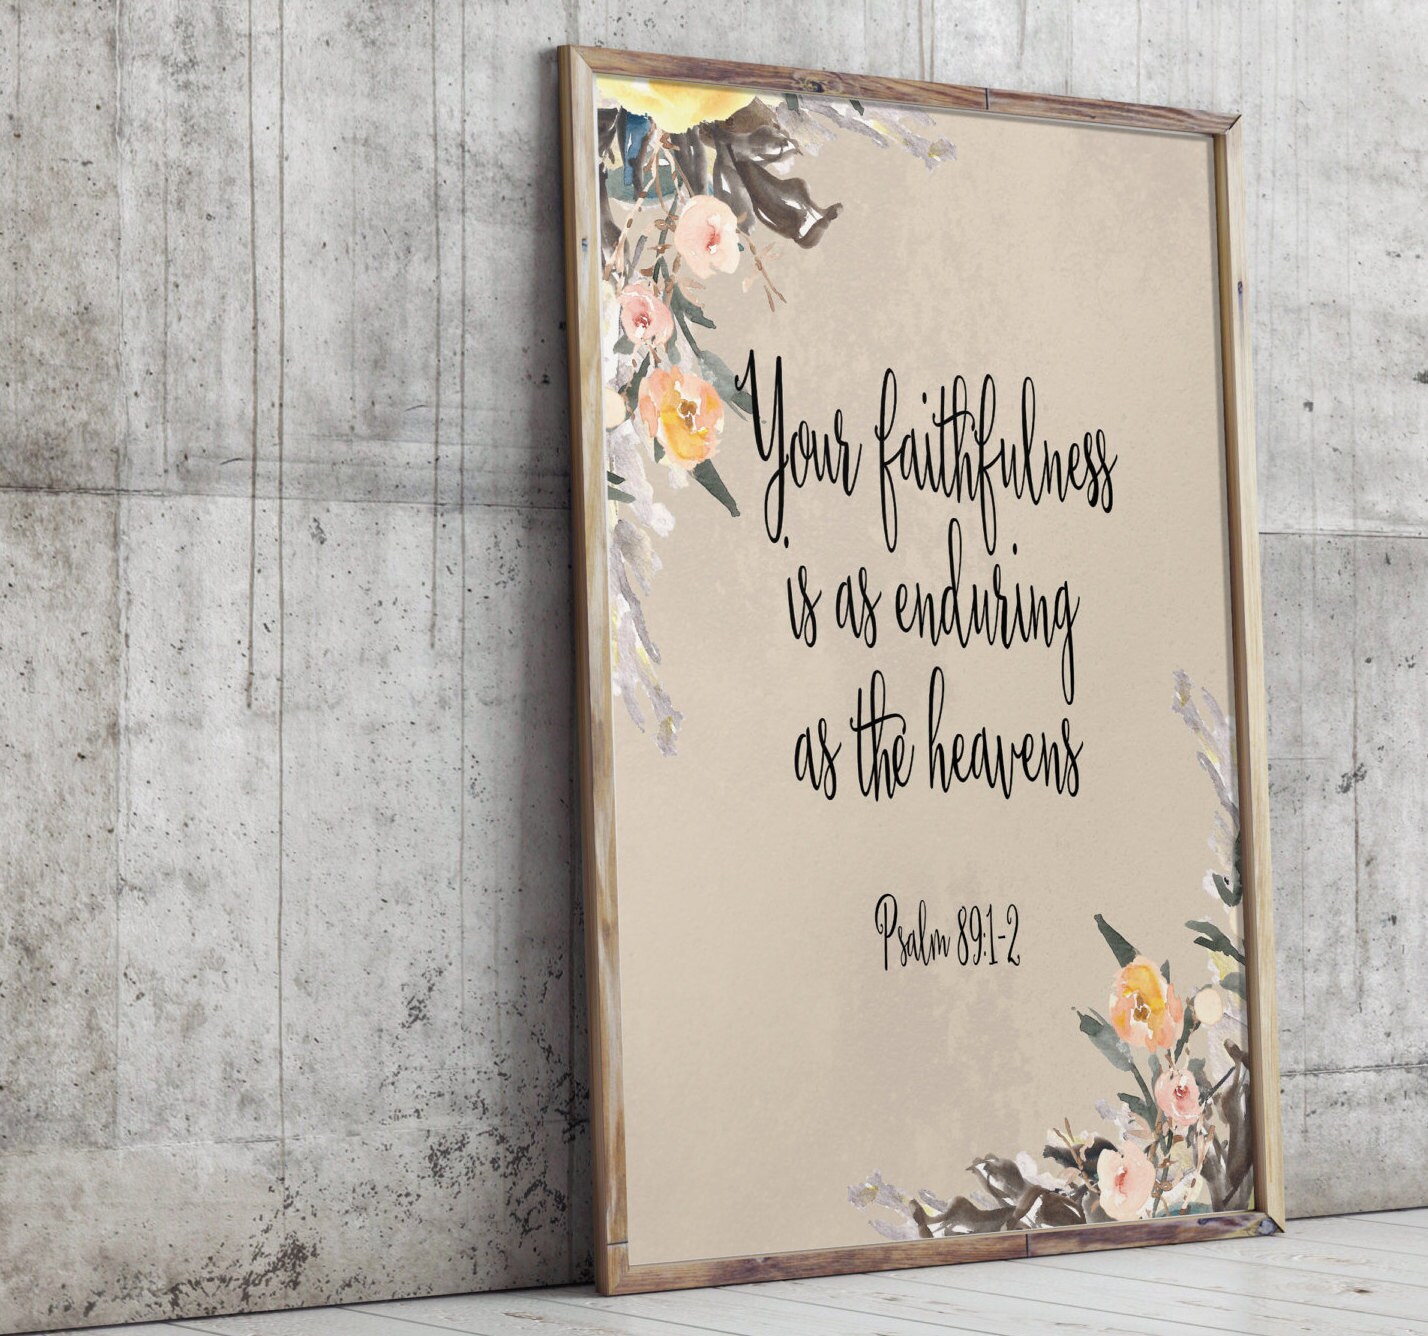 Your faithfulness
is as enduring
as the heavens
Psalm 89:1-2